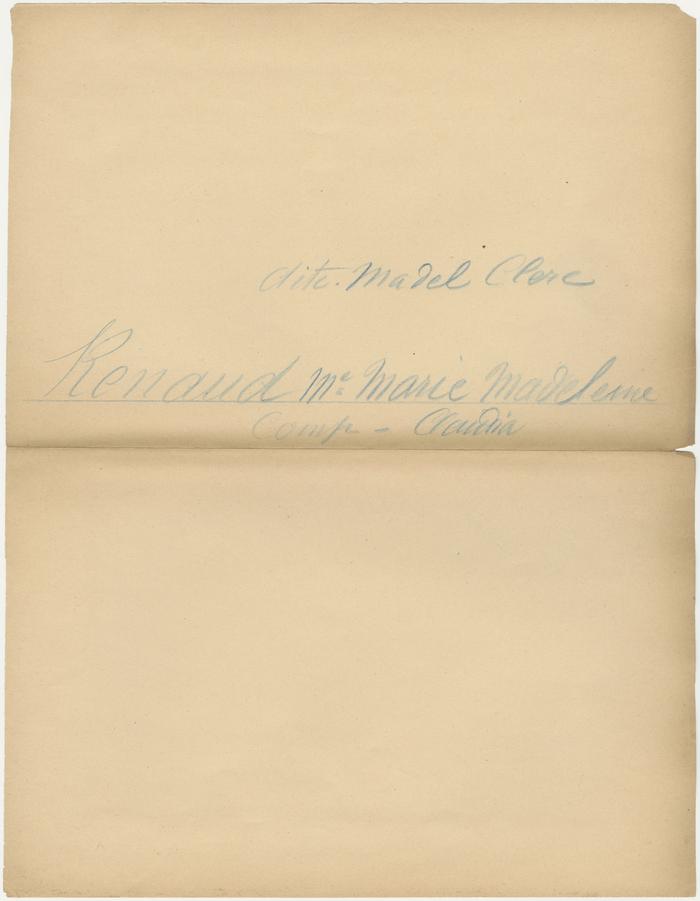 dite. Madel Clerc
Renaud Me. Marie Madeleine
Comp - Claudia